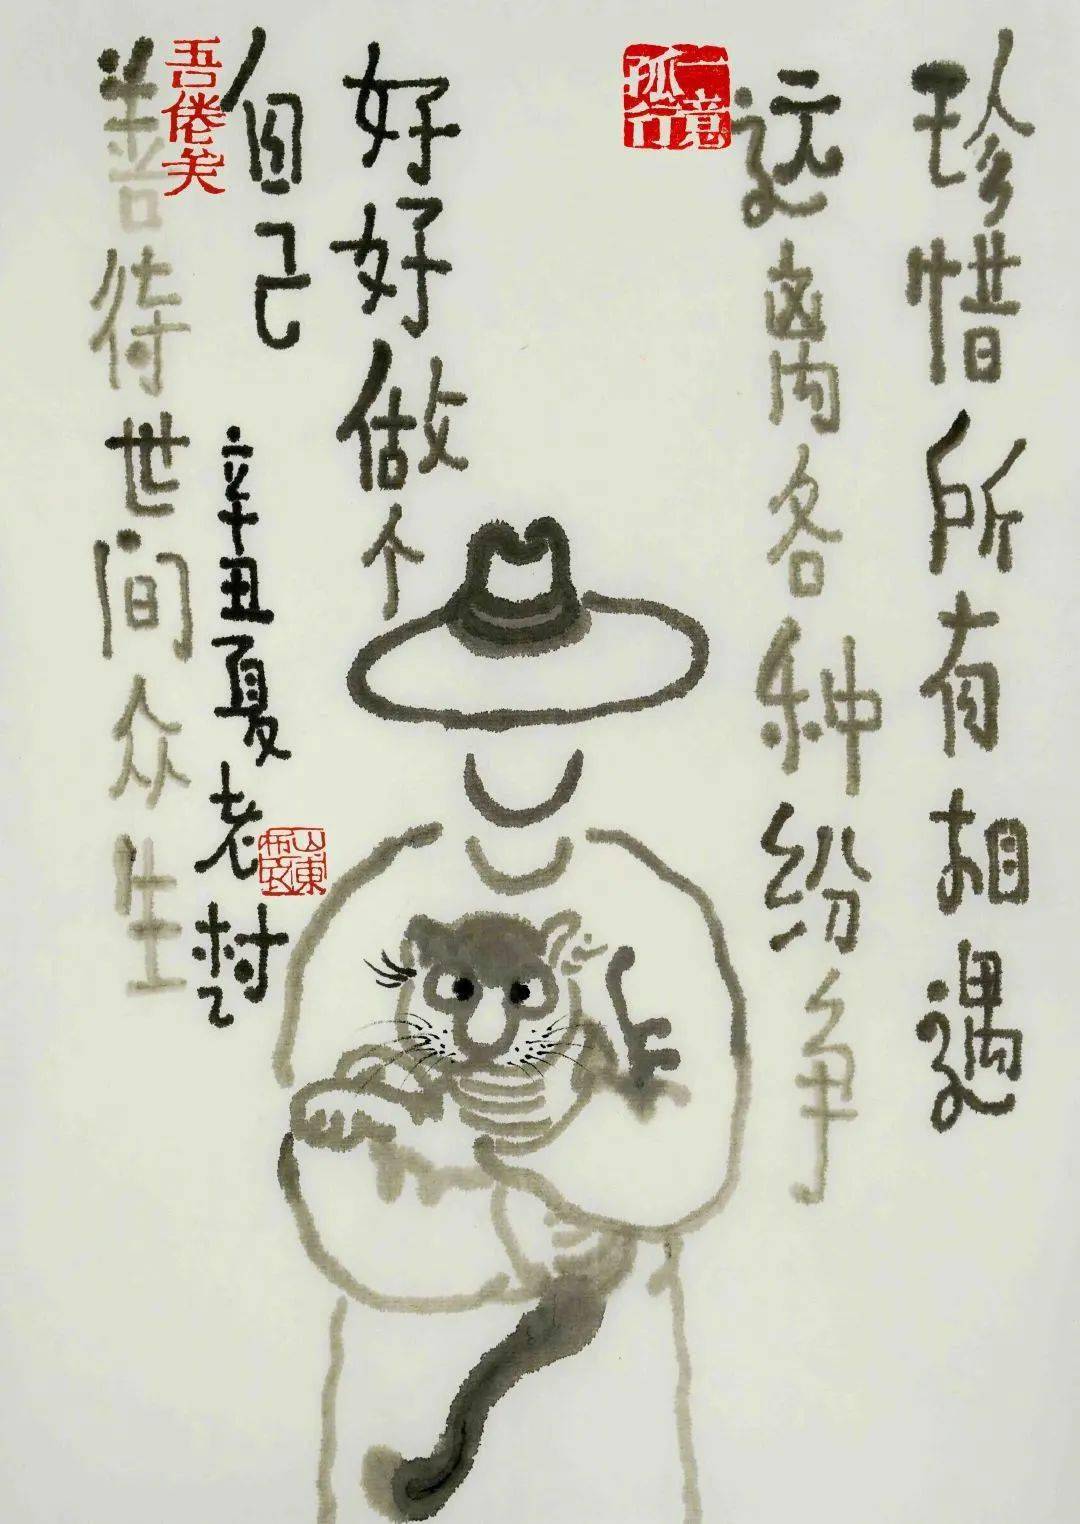 珍惜所有相遇
远离各种纷争
一意孤行
好好做个
自己
辛丑夏老树
山東布衣
吾倦矣
善待世间众生